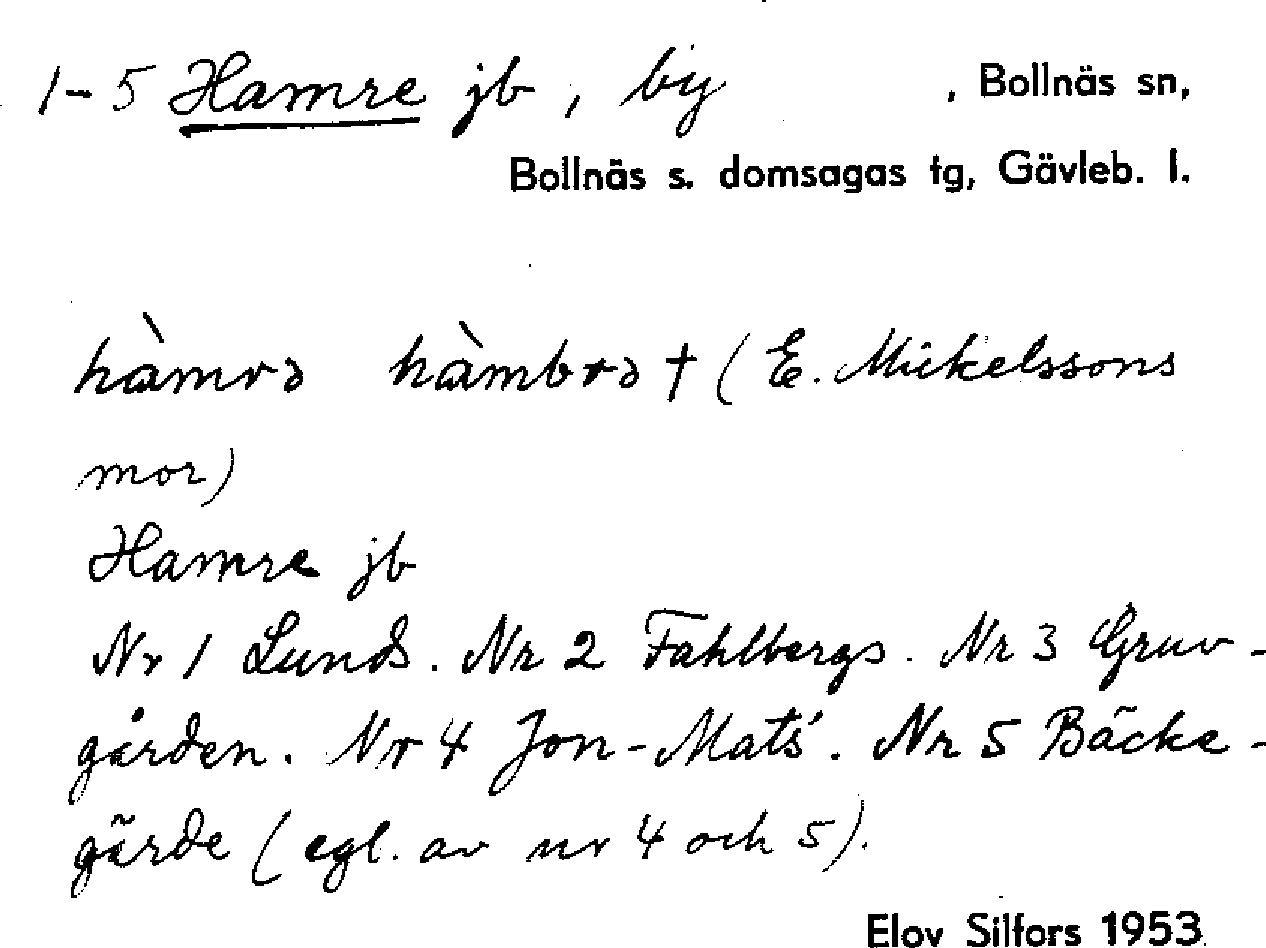 1-5 Hamre jb, by , Bollnäs sn,
Bollnäs s. domsagas tg, Gävleb. l.
hàmrə hàmbrə † (E. Mickelssons
mor)
Hamre jb
Nr 1 Lunds. Nr 2 Fahlbergs. Nr 3 Gruv-
gården. Nr 4 Jon-Mats'. Nr 5 Bäcke-
gärde (egl. av nr 4 och 5).
Elov Silfors 1953